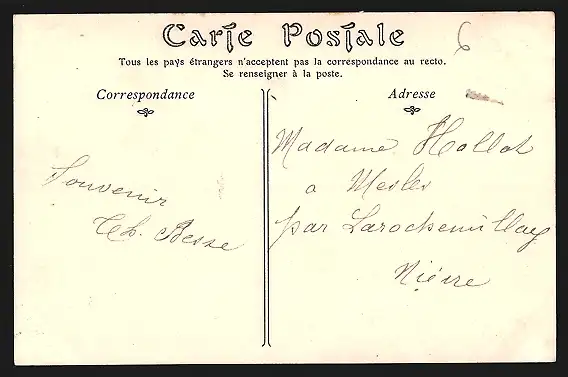 Carte Postale
Tous les pays étrangers n'acceptent pas la correspondance au recto.
Se renseigner à la poste.
Correspondance
Adresse
6
Souvenir
Th. Besse
Madame Hollot
a Mesles
par Larochemillay
Nièvre